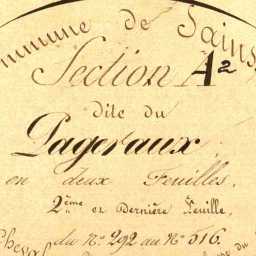 ommune de Sains
Section A2
dite du
Pageraux
en deux Feuilles.
2ème et Dernière Feuille,
du N° 292 au N° 516.
Cheval
du